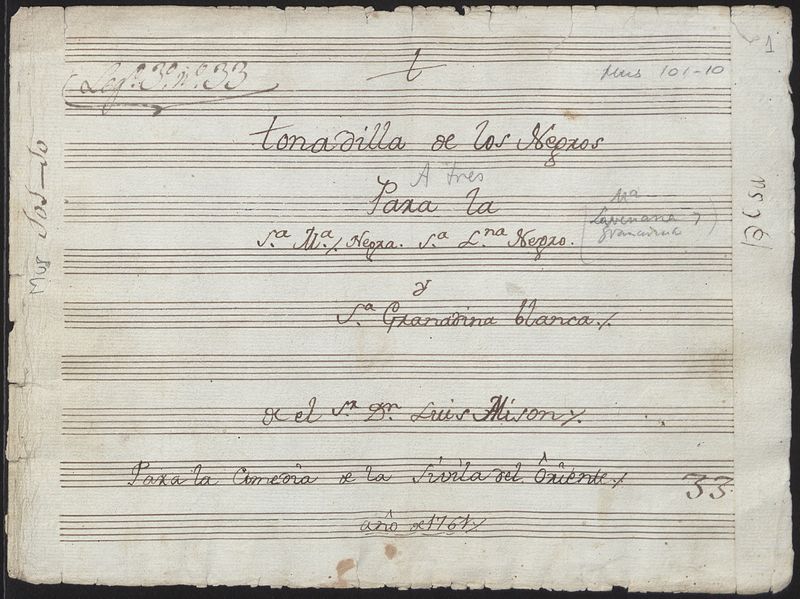 1
Leg.º 3.º n.º 33
t
Mus 101-10
tonadilla de los Negros
A tres
Para la
S.ª M.ª / Negra. S.ª L.na Negro.
Mª
Granadina
y
S.ª Granadina blanca /.
de el S.r D.n Luis Mison /.
Para la Comedia de la Sivila del Oriente /
33
año de 1761 /